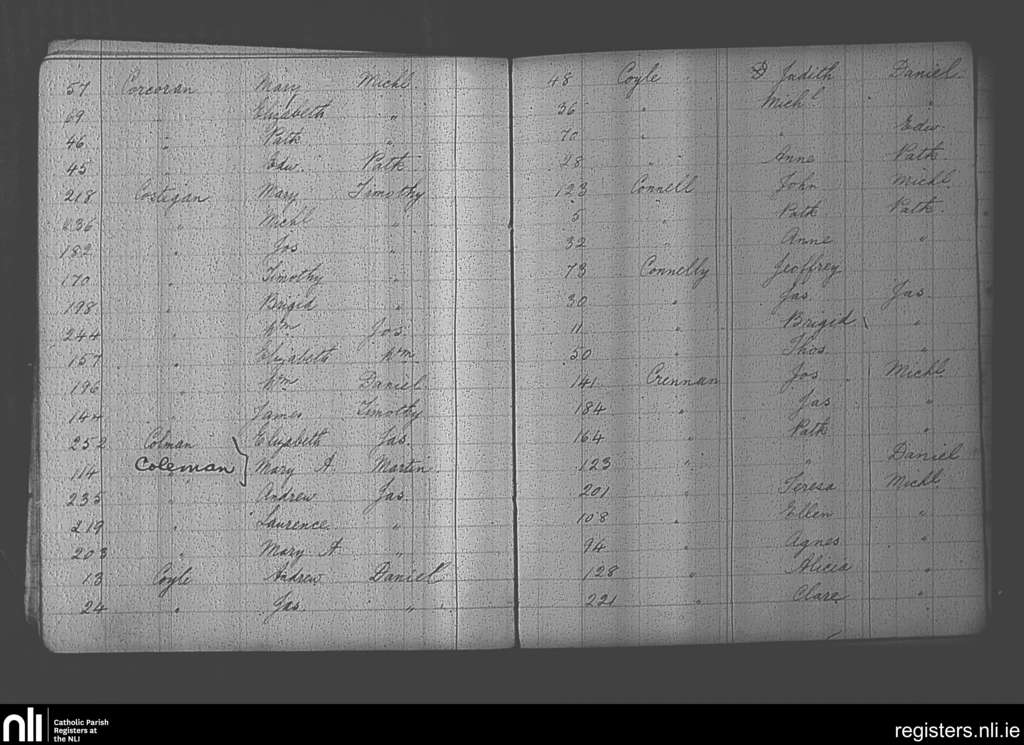 57 Corcoran Mary Michl.
69 " Elizabeth "
46 " Patk "
45 Edw. Patk.
218 Costigan Mary Timothy
236 " Michl "
182 " Jos "
170 " Timothy "
198 " Brigid "
244 " Wm Jos.
157 " Elizabeth Wm
196 " Wm Daniel
144 " James Timothy
252 Colman Elizabeth Jas.
114 Coleman } Mary A. Martin
235 " Andrew Jas.
219 " Laurence "
203 " Mary A. "
13 Coyle Andrew Daniel
24 " Jas. "
48 Coyle Judith Daniel
36 " Michl "
70 " " Edw.
28 " Anne Patk.
123 Connell John Michl.
5 " Patk Patk.
32 " Anne "
73 Connelly Jeoffrey
30 " Jas. Jas.
11 " Brigid "
50 " Thos. "
141 Crennan Jos. Michl.
184 " Jas "
164 " Patk "
123 " " Daniel
201 " Teresa Michl
108 " Ellen "
94 " Agnes "
128 " Alicia "
221 " Clare "
nli
Catholic Parish
Registers at
the NLI
registers.nli.ie